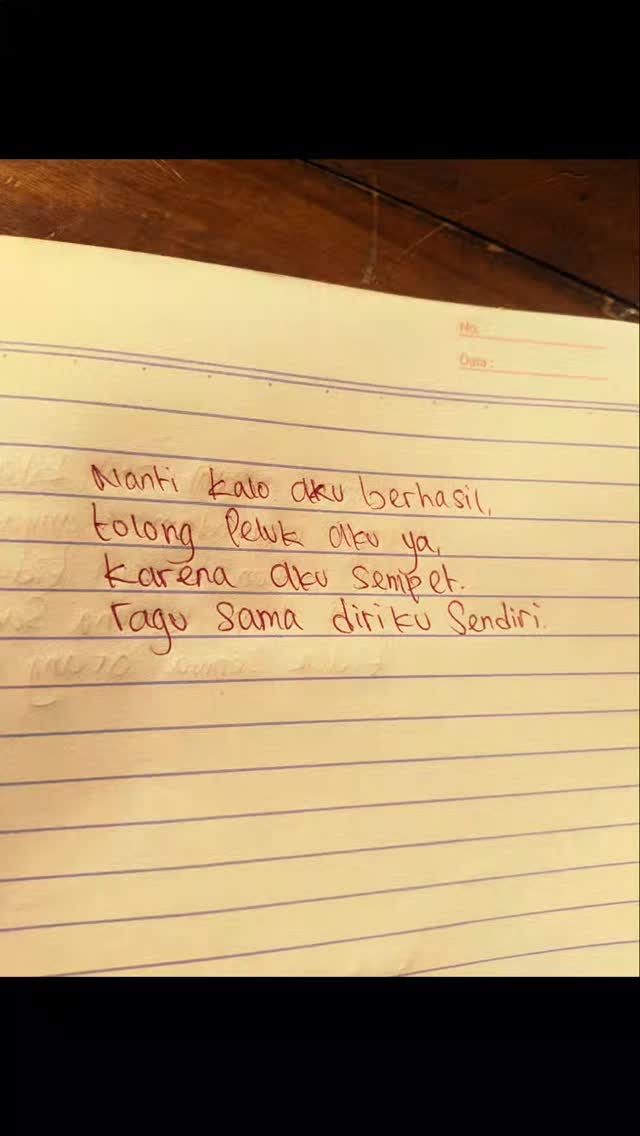 No:
Date:
Nanti kalo aku berhasil,
tolong Peluk aku ya,
karena aku sempet.
ragu sama diriku Sendiri.